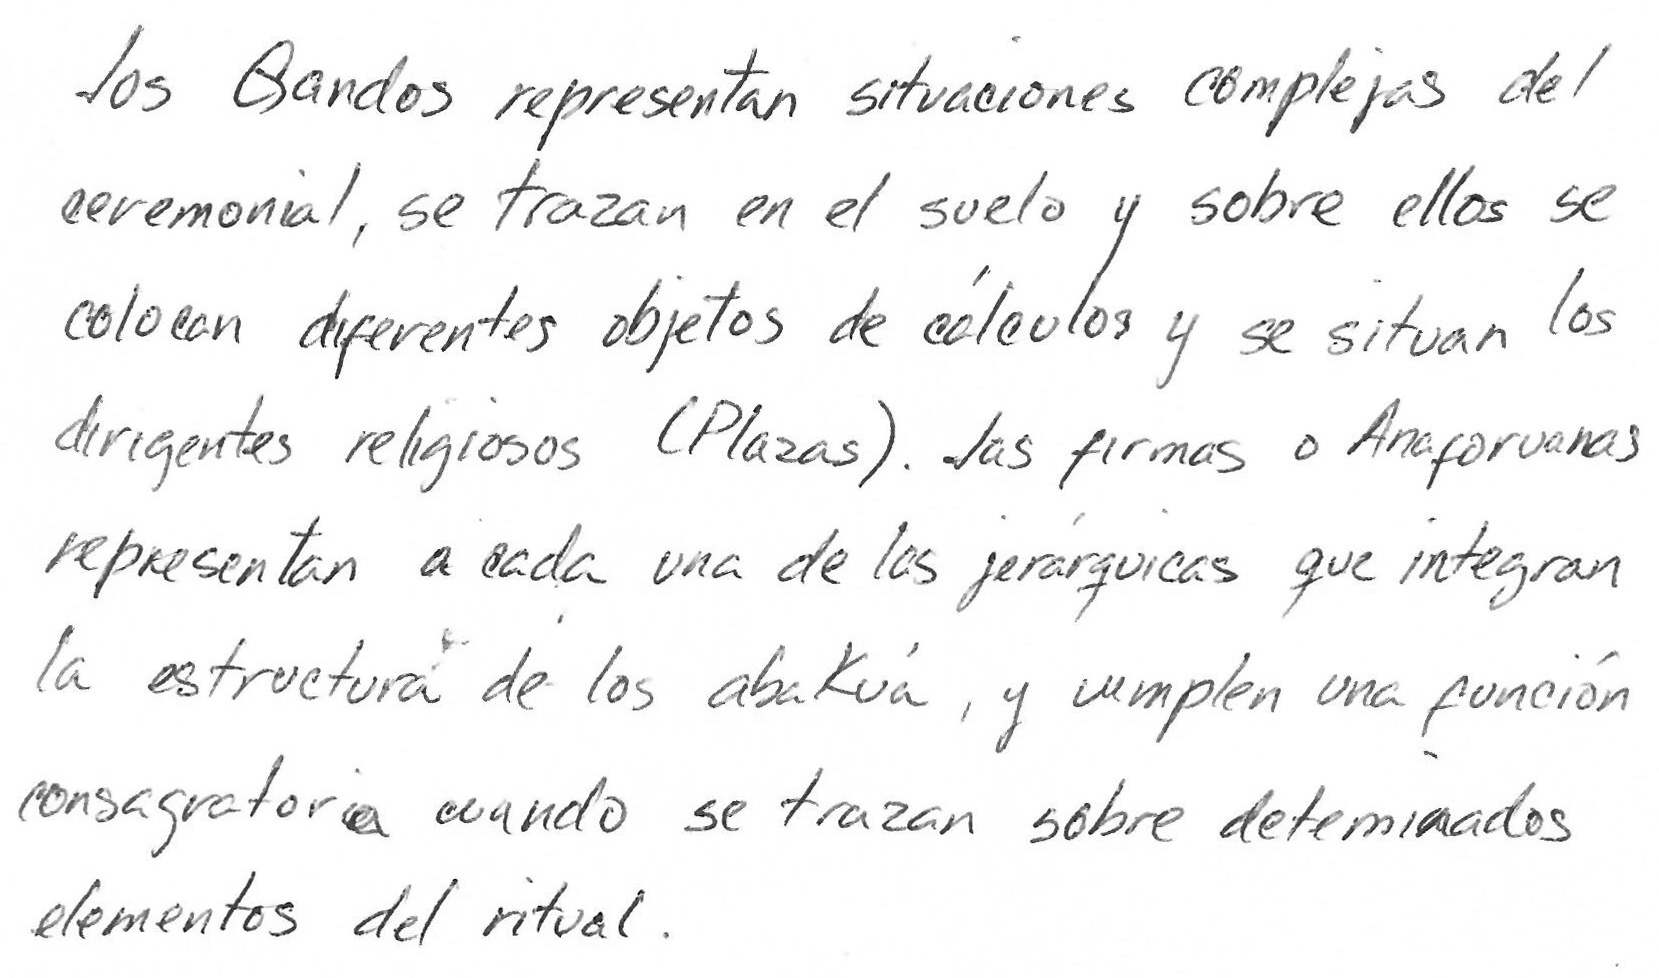 Los Gandos representan situaciones complejas del
ceremonial, se trazan en el suelo y sobre ellos se
colocan diferentes objetos de cálculos y se situan los
dirigentes religiosos (Plazas). Las firmas o Anaforuanas
representan a cada una de las jerárquicas que integran
la estructura de los abaKuá, y cumplen una función
consagratoria cuando se trazan sobre deteminados
elementos del ritual.